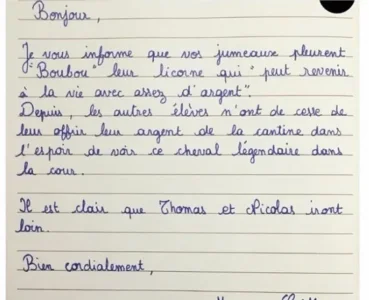 Bonjour,
Je vous informe que vos jumeaux pleurent
"Boubou" leur licorne qui "peut revenir
à la vie avec assez d'argent".
Depuis, les autres élèves n'ont de cesse de
leur offrir leur argent de la cantine dans
l'espoir de voir ce cheval légendaire dans
la cour.
Il est clair que Thomas et Nicolas iront
loin.
Bien cordialement,